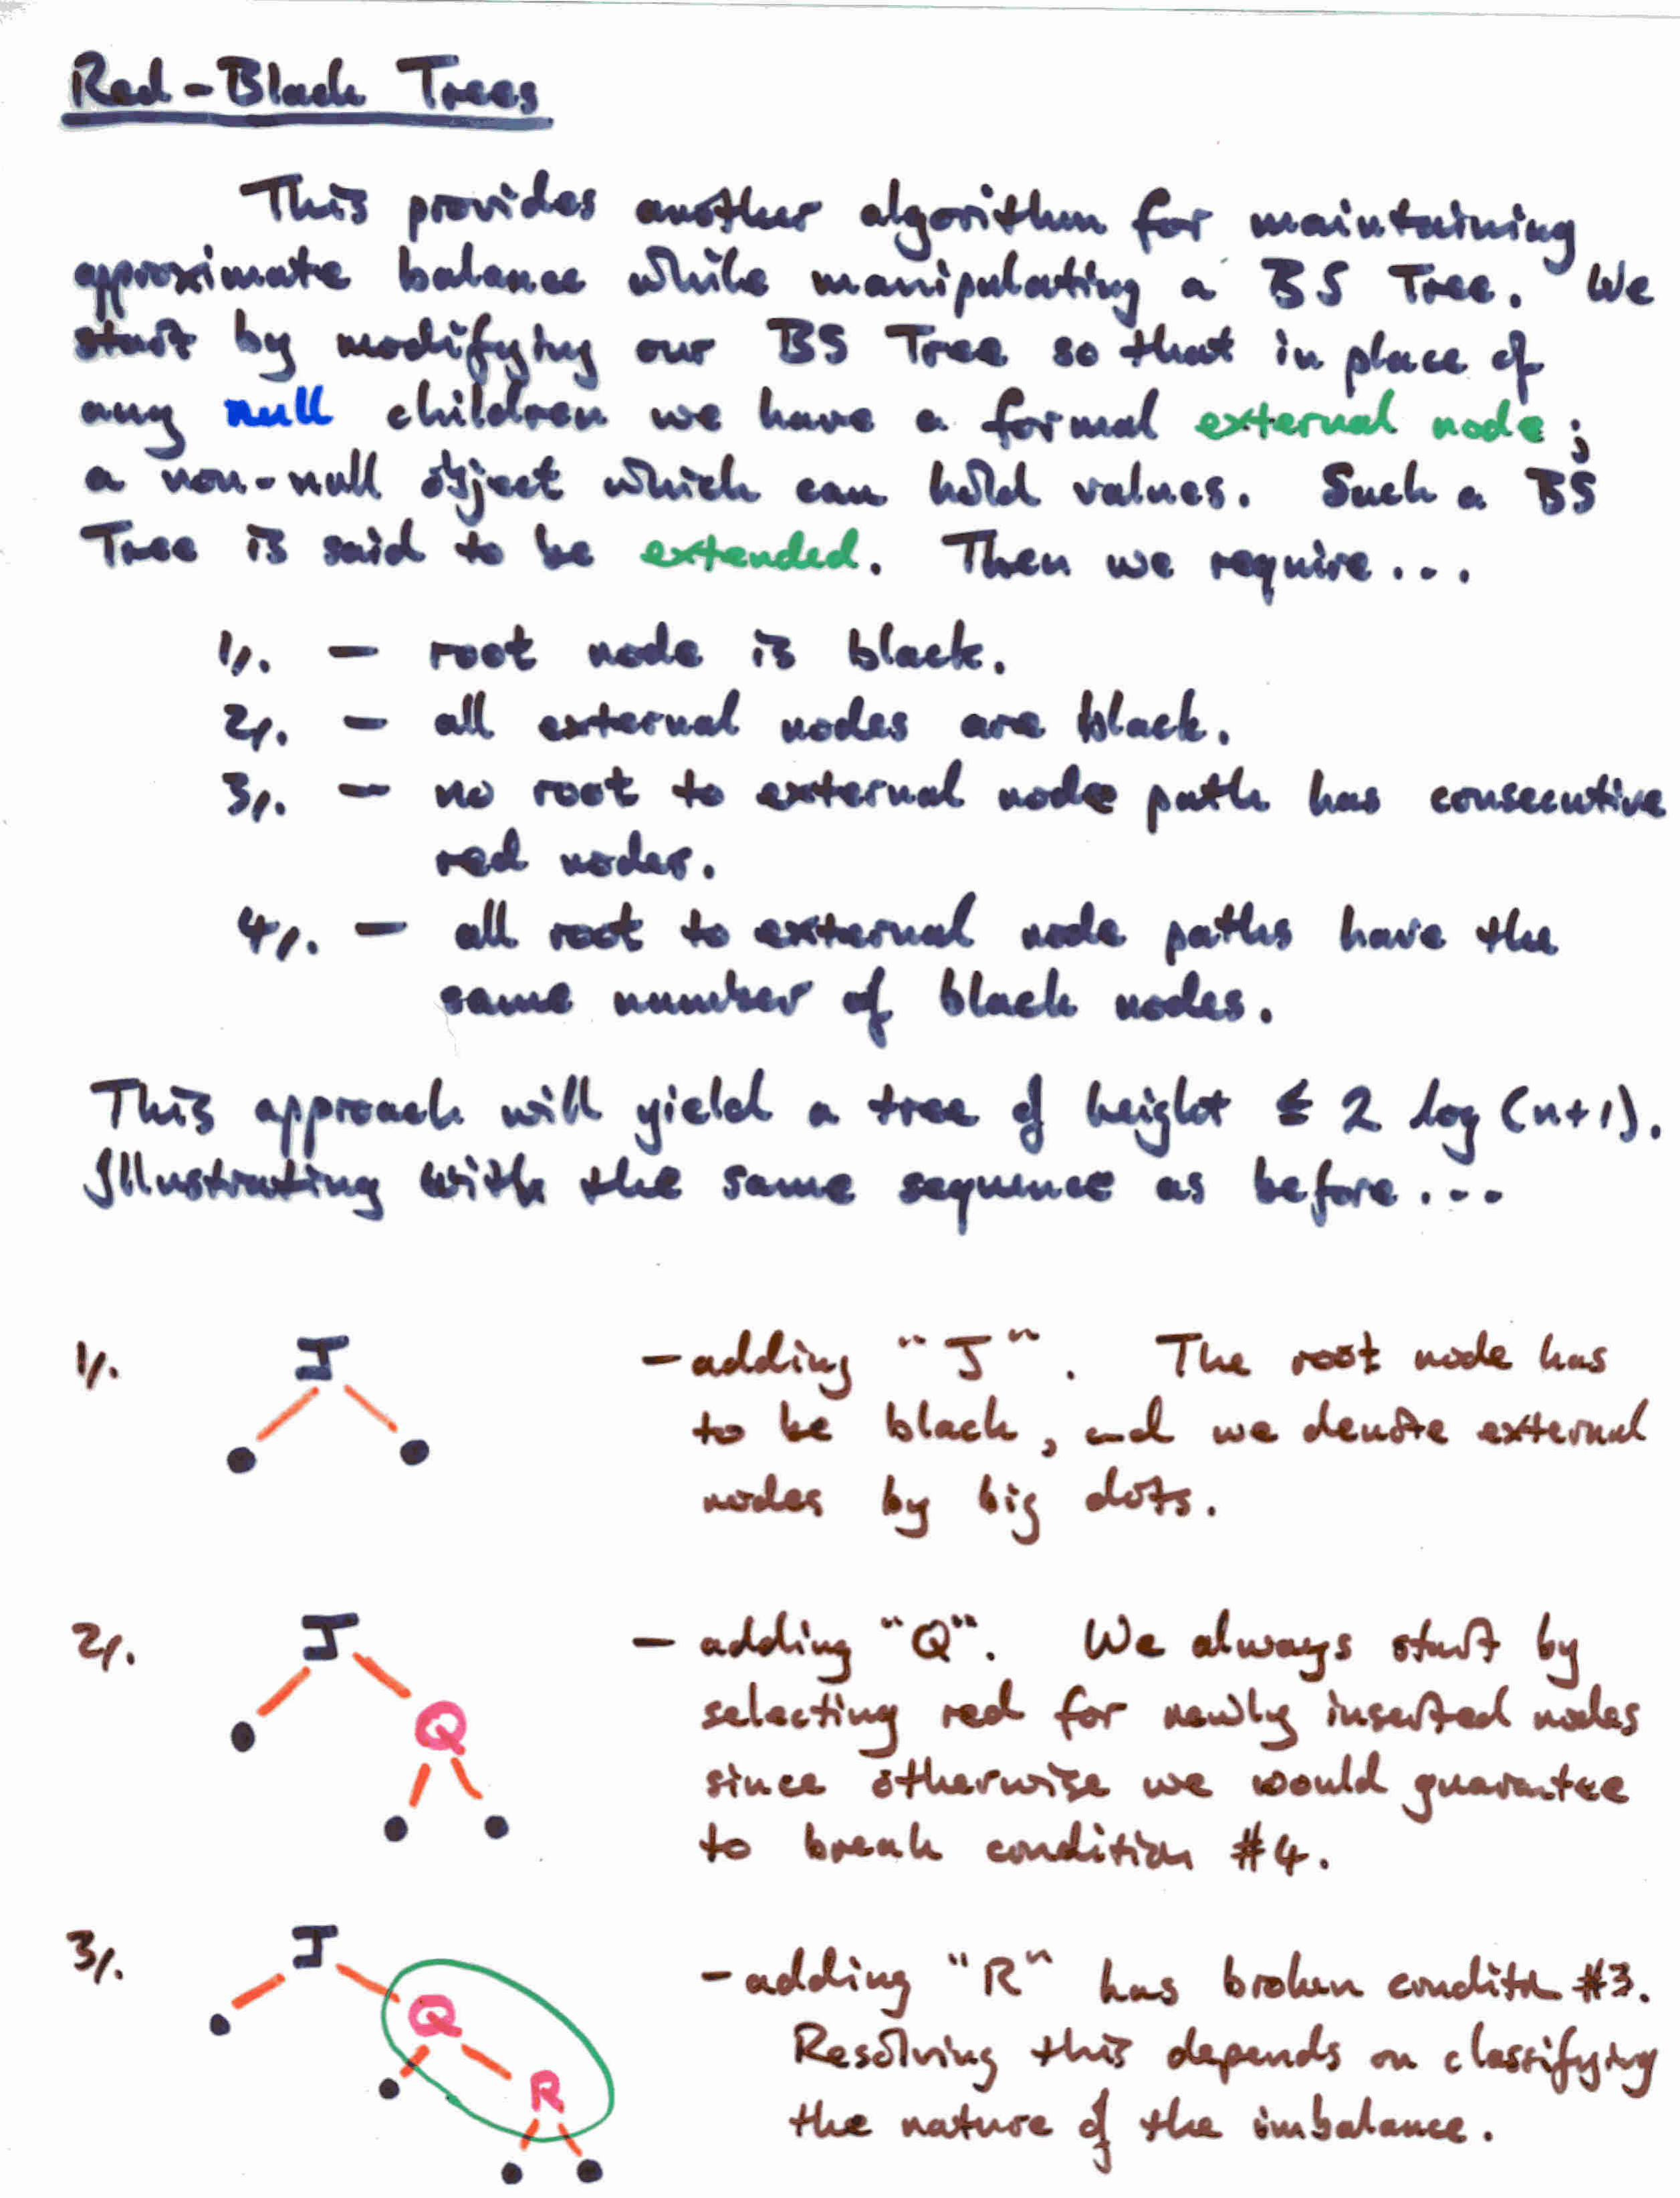 Red-Black Trees
This provides another algorithm for maintaining
approximate balance while manipulating a BS Tree. We
start by modifying our BS Tree so that in place of
any null children we have a formal external node;
a non-null object which can hold values. Such a BS
Tree is said to be extended. Then we require...
1/. - root node is black.
2/. - all external nodes are black.
3/. - no root to external node path has consecutive
red nodes.
4/. - all root to external node paths have the
same number of black nodes.
This approach will yield a tree of height ≤ 2 log (n+1).
Illustrating with the same sequence as before...
1/.
J
- adding "J". The root node has
to be black, and we denote external
nodes by big dots.
2/.
J
Q
- adding "Q". We always start by
selecting red for newly inserted nodes
since otherwise we would guarantee
to break condition #4.
3/.
J
Q
R
- adding "R" has broken conditn #3.
Resolving this depends on classifying
the nature of the imbalance.